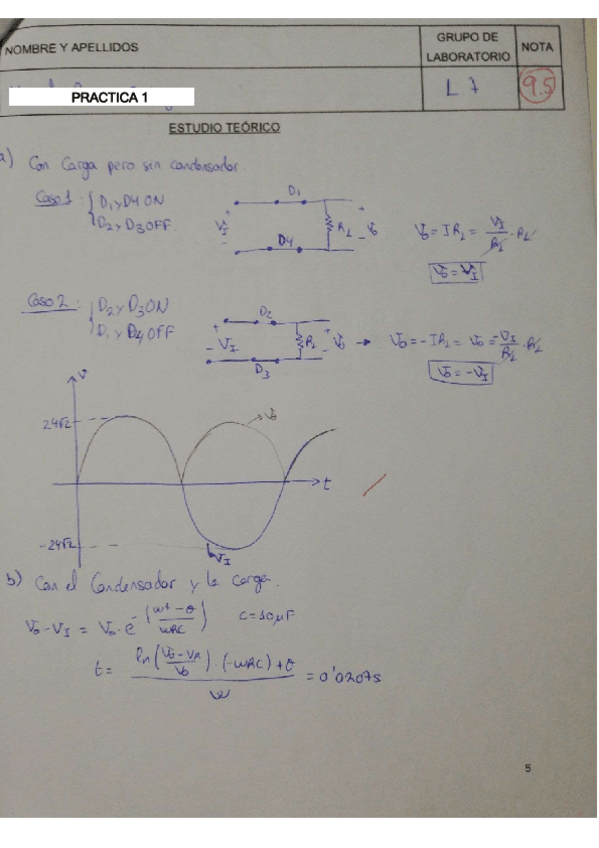 NOMBRE Y APELLIDOS
GRUPO DE LABORATORIO
NOTA
PRACTICA 1
L7
9.5
ESTUDIO TEÓRICO
a) Con Carga pero sin condensador.
Caso 1: D1 y D4 ON
D2 y D3 OFF
D1
VI
+
-
D4
RL
+
- Vo
Vo = IRL = VI/RL · RL
Vo = VI
Caso 2: D2 y D3 ON
D1 y D4 OFF
D2
+
- VI
-
D3
RL
+
- Vo
→ Vo = -IRL = Vo = -VI/RL · RL
Vo = -VI
V
24√2
→ Vo
t
-24√2
VI
b) Con el Condensador y la carga.
Vo - VI = Vo · e^-((wt - θ)/wRC) C = 10μF
t = (ln((Vo - VR)/Vo) · (-wRC) + θ)/w = 0'0207s
5